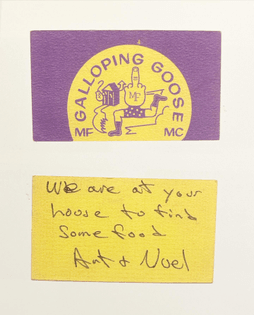 GALLOPING GOOSE
MF
MF MC
We are at your
house to find
some food
Ant + Nuel